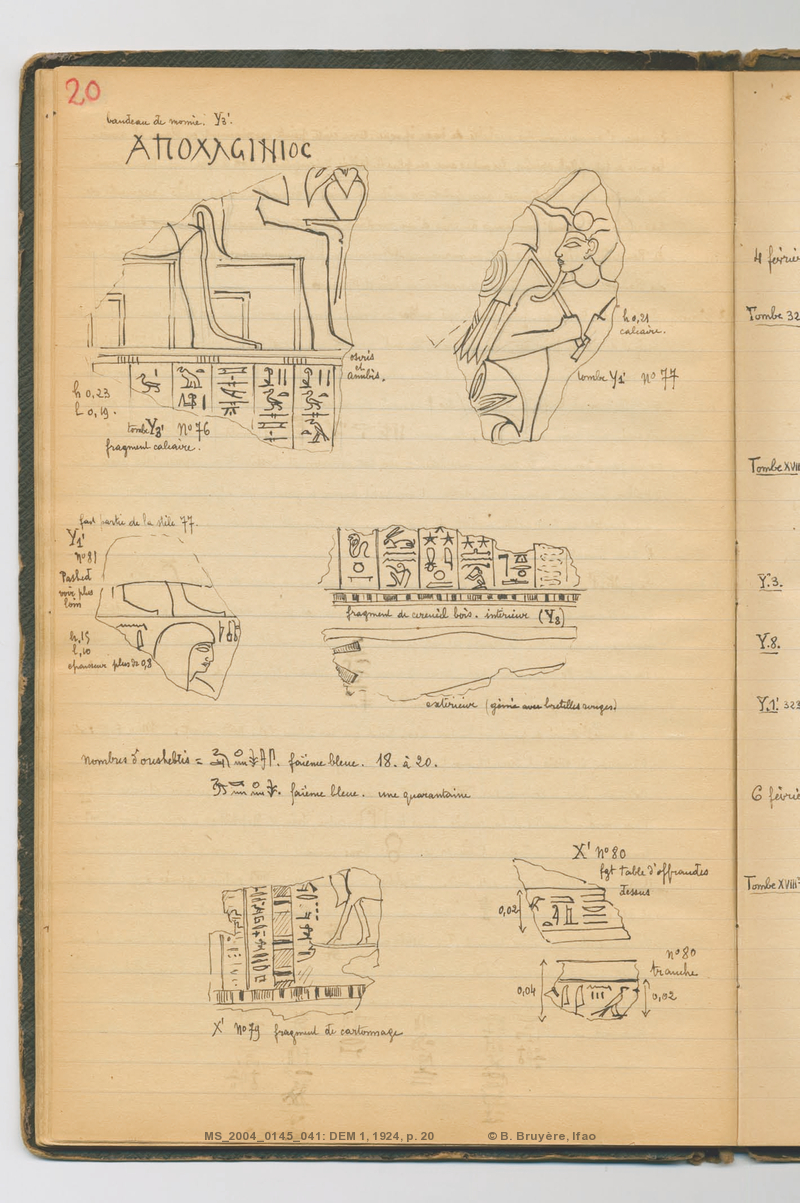 20
bandeau de momie. Y3'.
ΑΠΟΛΛGΙΝΙΟC
osiris
et
anubis.
h 0,23
L 0,19.
tombe Y3' N° 76
fragment calcaire.
h 0,21
calcaire.
tombe Y1' N° 77
fait partie de la stèle 77.
Y1'
n° 81
Pashed
voir plus
loin
h. 15
l. 10
épaisseur plus de 0,8
fragment de cercueil bois. intérieur (Y8)
extérieur (génie avec bretelles rouges)
Nombres d'oushebtis = faïence bleue. 18. à 20.
faïence bleue. une quarantaine
X' N° 80
fgt table d'offrandes
dessus
0,02
n° 80
tranche
0,04
0,02
X' N° 79 fragment de cartonnage
4 février
Tombe 32
Tombe XVIII
Y.3.
Y.8.
Y.1' 323
6 février
Tombe XVIII
MS_2004_0145_041: DEM 1, 1924, p. 20 © B. Bruyère, Ifao